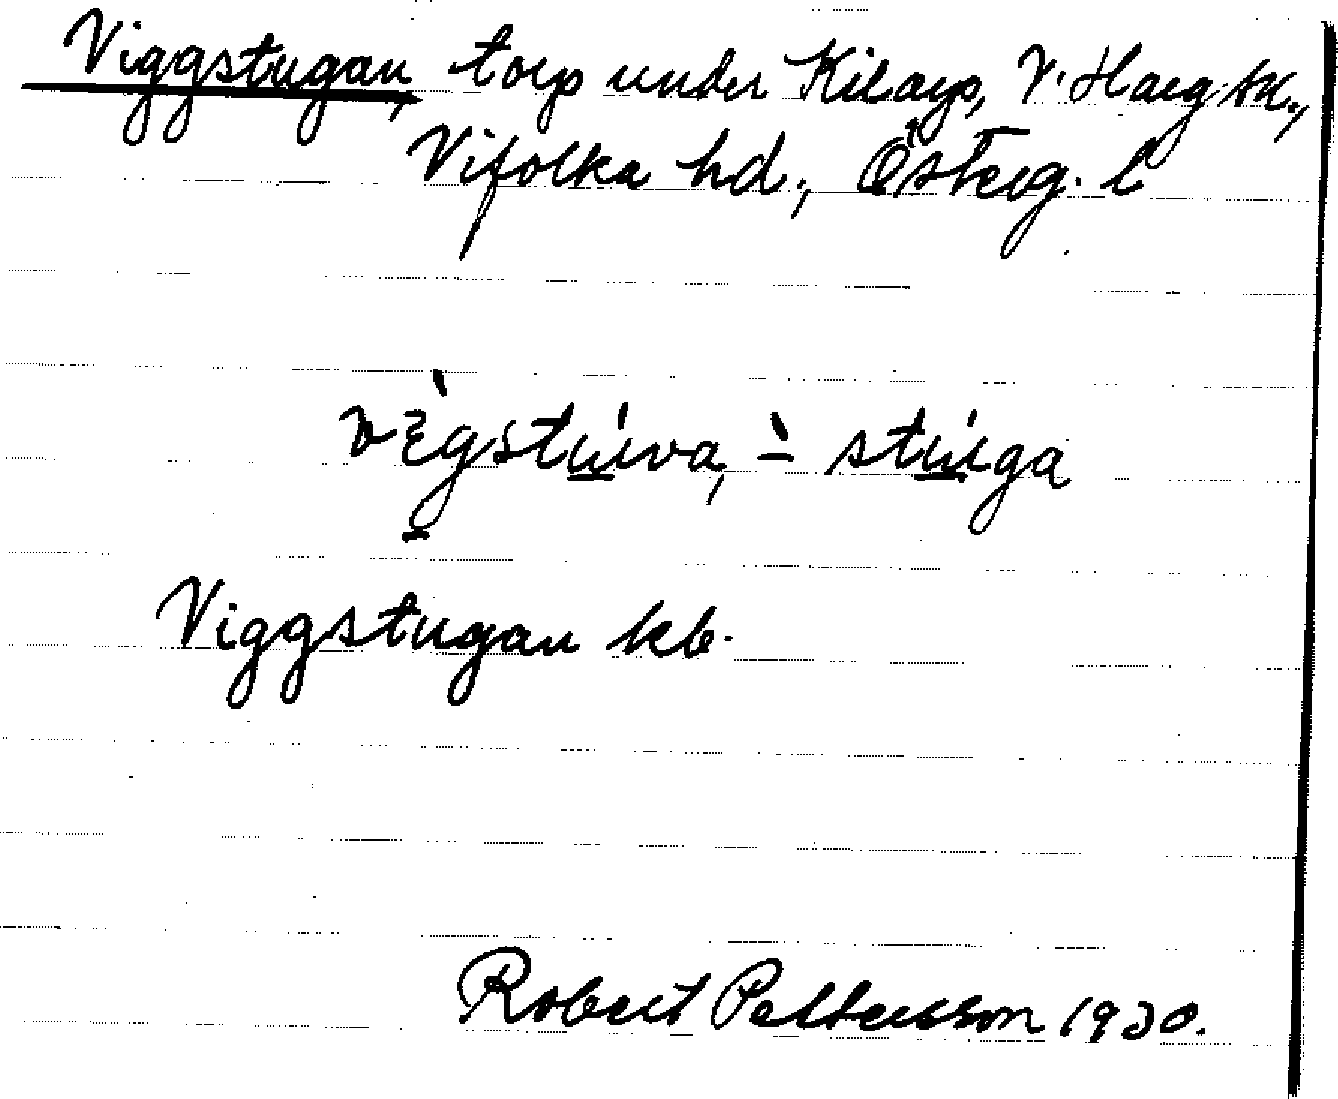 Viggstugan, torp under Kilarp, V. Harg sn.,
Vifolka hd., Österg. l
vègstúva, -̀ stúga
Viggstugan kb.
Robert Pettersson 1930.